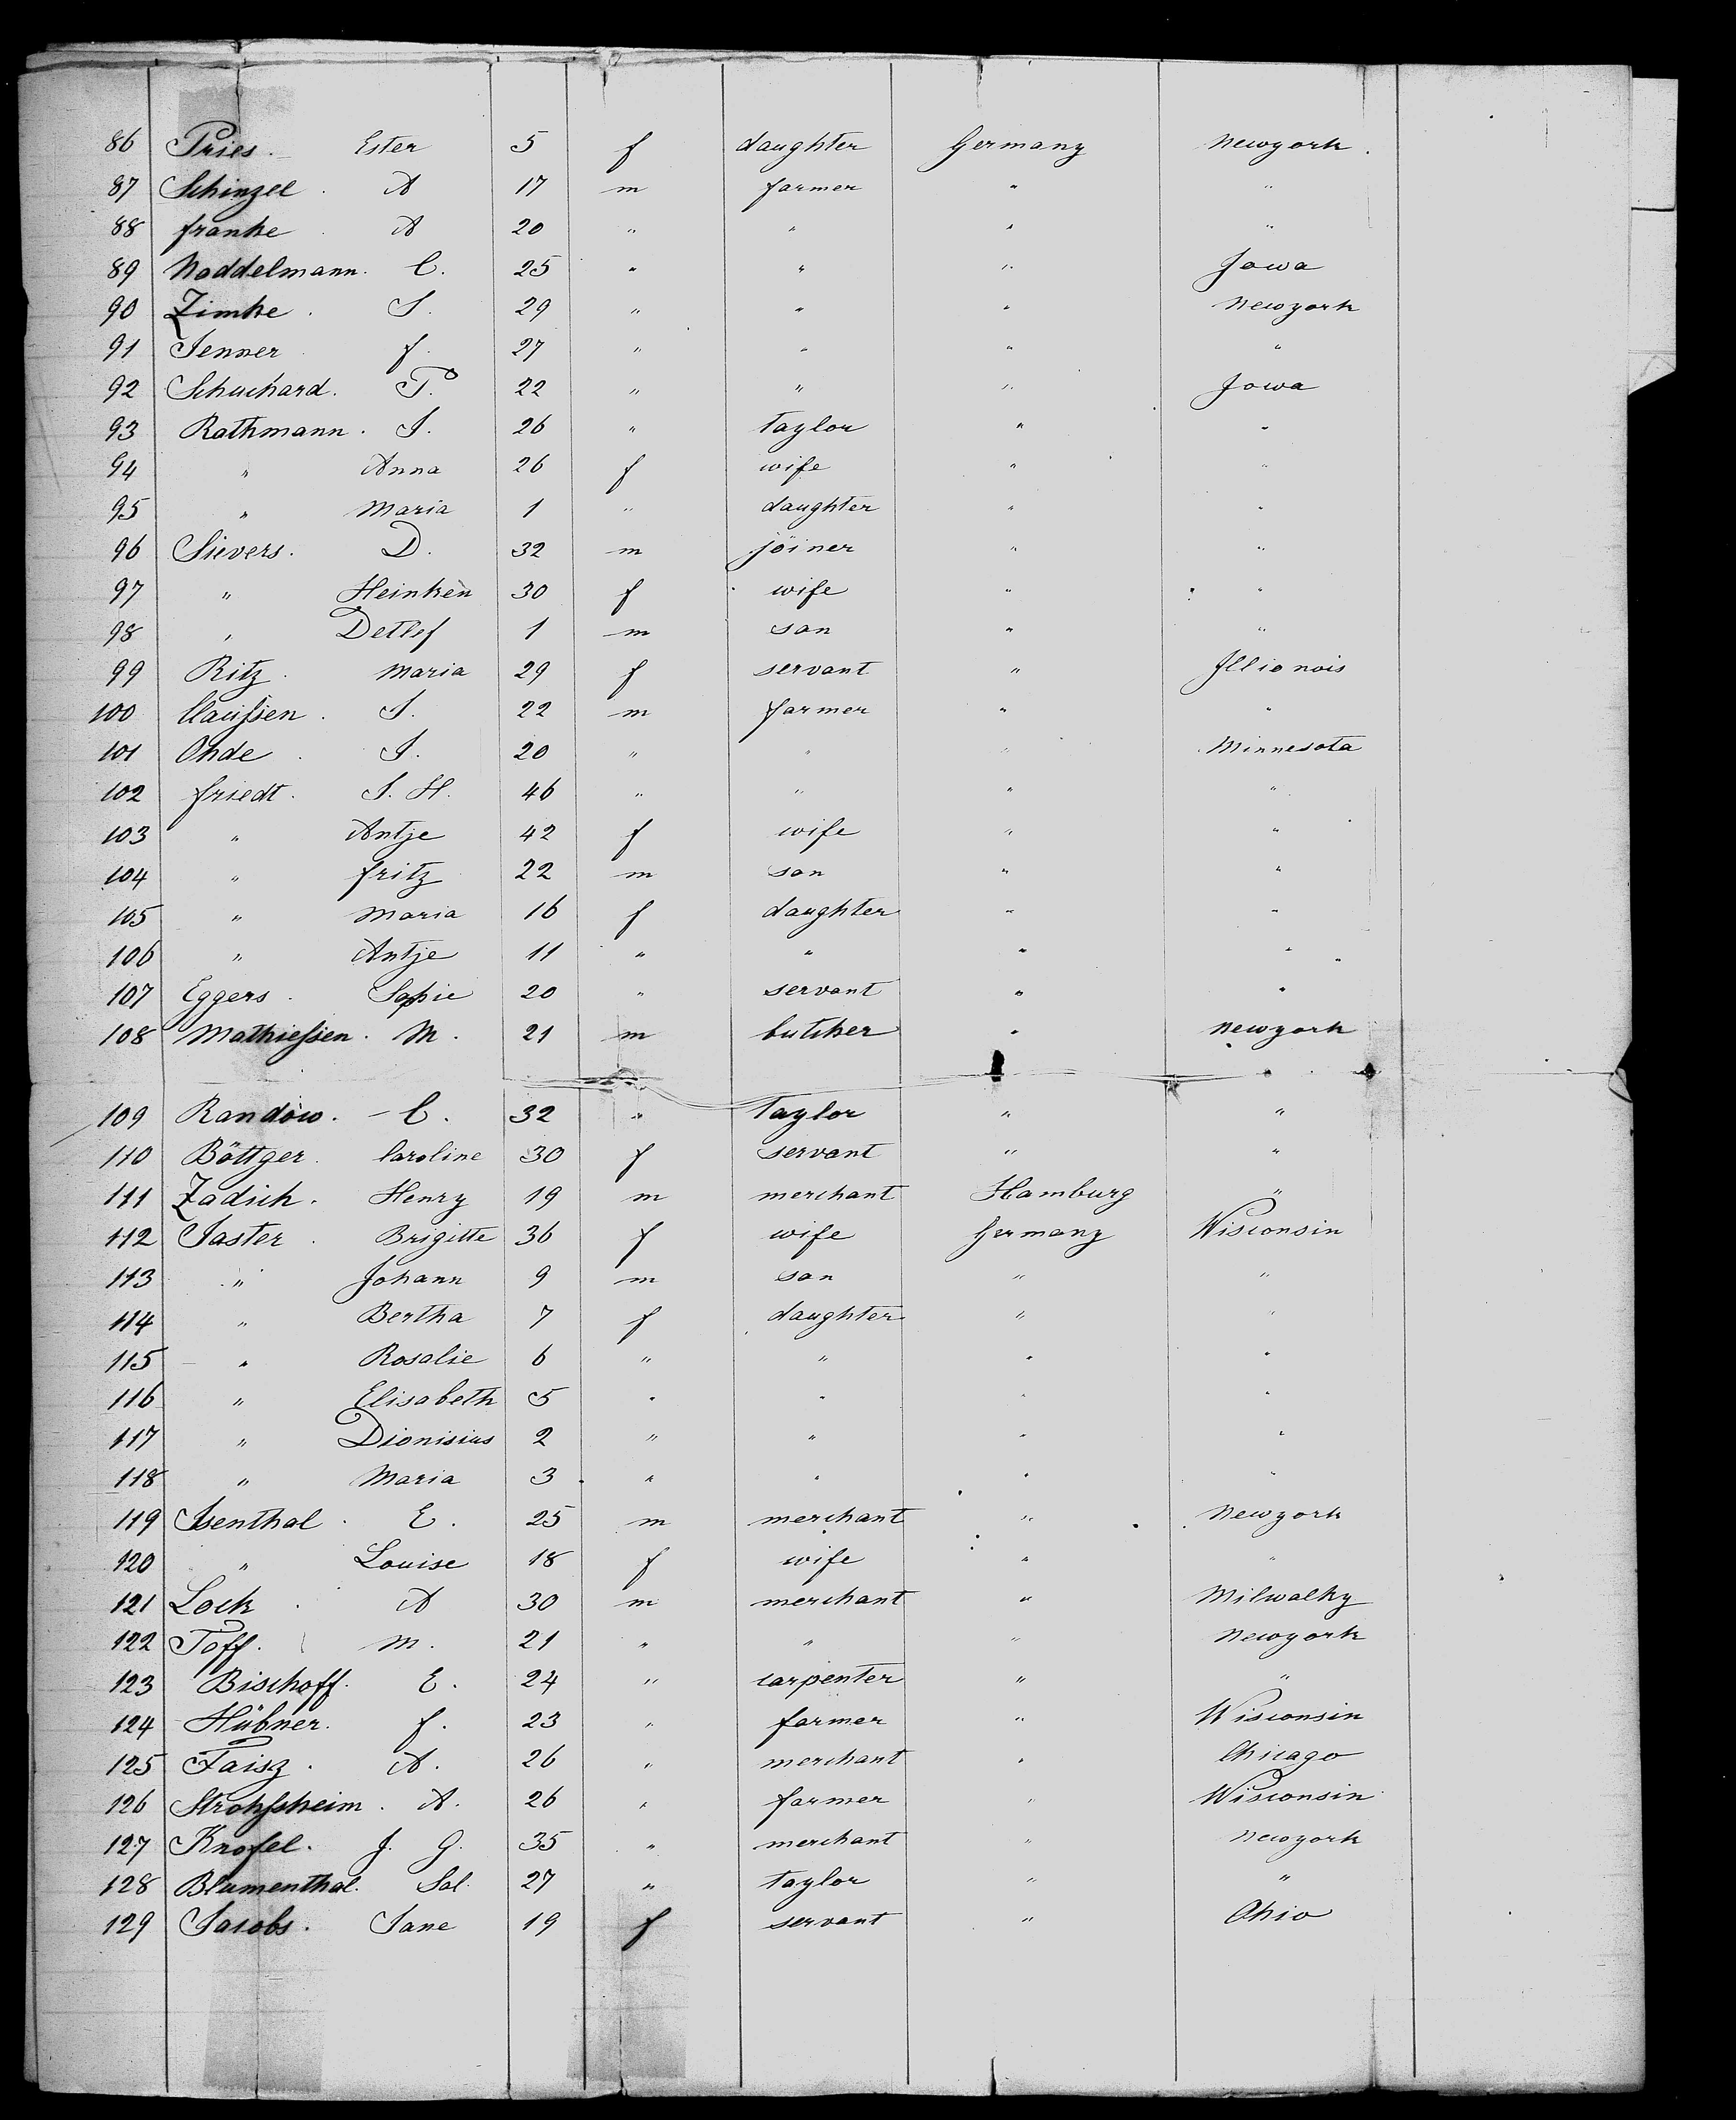 86 Pries. Ester 5 f daughter Germany Newyork.
87 Schinzel. A 17 m farmer " "
88 franke. A 20 " " " "
89 Noddelmann. C. 25 " " " Jowa
90 Zimke. J. 29 " " " Newyork
91 Jenner f. 27 " " " "
92 Schuchard. T. 22 " " " Jowa
93 Rathmann. J. 26 " taylor " "
94 " Anna 26 f wife " "
95 " Maria 1 " daughter " "
96 Sievers. D. 32 m joiner " "
97 " Heinken 30 f wife " "
98 " Detlef 1 m son " "
99 Ritz. Maria 29 f servant " Jllionois
100 Claussen. J. 22 m farmer " "
101 Ohde. J. 20 " " " Minnesota
102 friedt. J. H. 46 " " " "
103 " Antje 42 f wife " "
104 " fritz 22 m son " "
105 " Maria 16 f daughter " "
106 " Antje 11 " " " "
107 Eggers. Sophie 20 " servant " "
108 Mathiessen. M. 21 m butcher " Newyork
109 Randow. C. 32 " taylor " "
110 Böttger. Caroline 30 f servant " "
111 Zadich. Henry 19 m merchant Hamburg "
112 Jaster. Brigitte 36 f wife Germany Wisconsin
113 " Johann 9 m son " "
114 " Bertha 7 f daughter " "
115 " Rosalie 6 " " " "
116 " Elisabeth 5 " " " "
117 " Dionisius 2 " " " "
118 " Maria 3 " " " "
119 Isenthal. E. 25 m merchant " Newyork
120 " Louise 18 f wife " "
121 Lock. A 30 m merchant " Milwalky
122 Toff. M. 21 " " " Newyork
123 Bischoff. E. 24 " carpenter " "
124 Hübner. f. 23 " farmer " Wisconsin
125 Taisz. A. 26 " merchant " Chicago
126 Strohssheim. A. 26 " farmer " Wisconsin
127 Knofel. J. G. 35 " merchant " Newyork
128 Blumenthal. Sal. 27 " taylor " "
129 Jacobs. Jane 19 f servant " Ohio